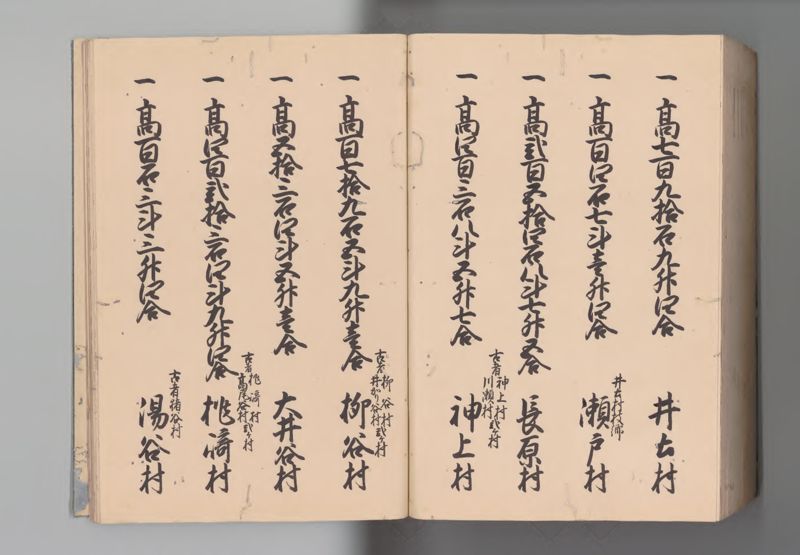 一 高七百九拾石九升四合 井土村
一 高百四石七斗壹升四合 瀬戸村
井土村枝郷
一 高貳百五拾四石八斗七升五合 長原村
一 高四百三石八斗五升七合 神上村
古者神上村
川瀬村貳ヶ村
一 高百七拾九石五斗九升壹合 柳谷村
古者柳谷村
井かり谷村貳ヶ村
一 高五拾三石四斗五升壹合 大井谷村
一 高四百貳拾三石四斗九升四合 桃崎村
古者桃崎村
高尾谷村貳ヶ村
一 高百石三斗三升四合 湯谷村
古者猪谷村